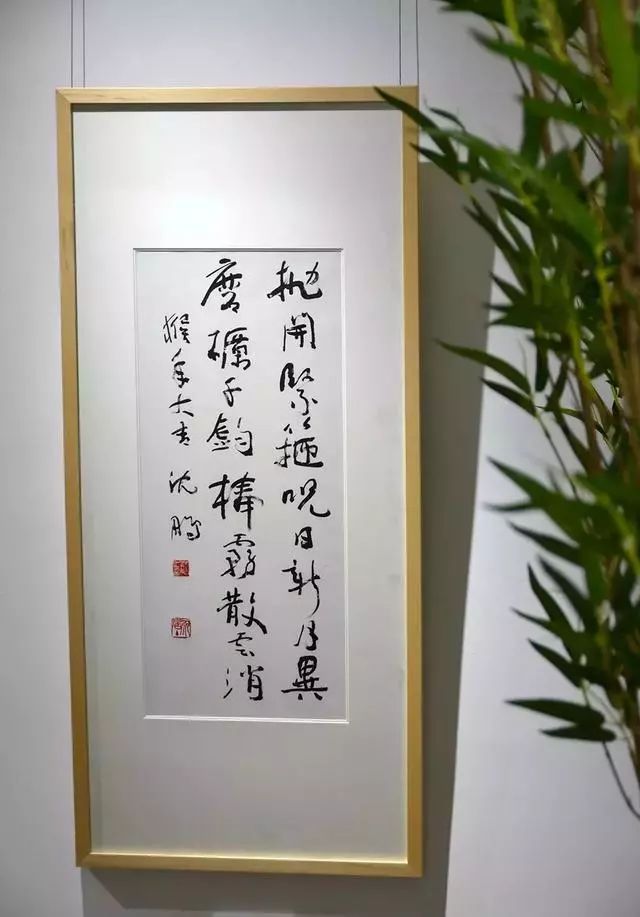 抛開緊箍咒日新月異
磨礪千鈞棒霧散雲消
猴年大吉 沈鵬